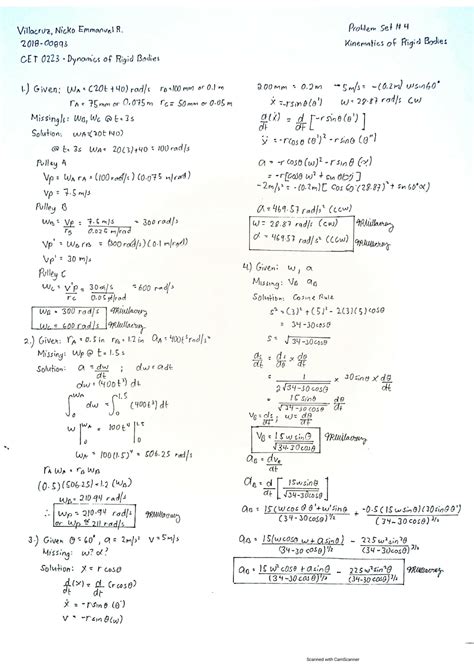 Villacruz, Nicko Emmanuel R.
2018-00893
CET 0223 - Dynamics of Rigid Bodies
Problem Set #4
Kinematics of Rigid Bodies
1.) Given: ωA = (20t+40) rad/s rD=100mm or 0.1m
rA = 75mm or 0.075m rC = 50mm or 0.05m
Missing: ωB, ωC @ t=3s
Solution:
@ t= 3s ωA = 20(3)+40 = 100 rad/s
Pulley A
Vp = ωA rA = (100 rad/s)(0.075 m/rad)
Vp = 7.5 m/s
Pulley B
ωB = Vp/rB = 7.5 m/s / 0.025 m/rad = 300 rad/s
Vp' = ωB rD = (300 rad/s)(0.1 m/rad)
Vp' = 30 m/s
Pulley C
ωC = Vp'/rC = 30 m/s / 0.05 m/rad = 600 rad/s
ωB = 300 rad/s
ωC = 600 rad/s
2.) Given: rA = 0.5 in rB = 1.2 in
Missing: ωB @ t = 1.5s
Solution: α = dω/dt ; dω = αdt
dω = (400t³) dt
∫₀^ωA dω = ∫₀^1.5 (400t³) dt
ω |₀^ωA = 100t⁴ |₀^1.5
ωA = 100(1.5)⁴ = 506.25 rad/s
rA ωA = rB ωB
(0.5)(506.25) = 1.2 (ωB)
ωB = 210.94 rad/s
∴ ωB = 210.94 rad/s
or ωB ≈ 211 rad/s
3.) Given: θ = 60°, a = 2m/s² v = 5m/s
Missing: ω? α?
Solution: x = r cosθ
d/dt (x) = d/dt (r cosθ)
ẋ = -r sinθ (θ')
v = -r sinθ (ω)
200mm = 0.2m → 5m/s = -(0.2m) ω sin60°
ẋ = -r sinθ(θ') ω = 28.87 rad/s CW
d(ẋ)/dt = d/dt [-r sinθ(θ')]
ẍ = -r cosθ(θ')² - r sinθ(θ'')
a = -r cosθ(ω)² - r sinθ(α)
= -r[cosθ ω² + sinθ(α)]
-2m/s² = -(0.2m) [cos60 (28.87)² + sin60°α]
α = 469.57 rad/s² (CCW)
ω = 28.87 rad/s (CW)
α = 469.57 rad/s² (CCW)
4.) Given: ω, α
Missing: VB aB
Solution: Cosine Rule
s² = (3)² + (5)² - 2(3)(5)cosθ
= 34-30cosθ
s = √34-30cosθ
ds/dt = ds/dθ × dθ/dt
= 1 / 2√34-30cosθ × 30sinθ × dθ/dt
= 15sinθ / √34-30cosθ dθ/dt
VB = ds/dt ; ω = dθ/dt
VB = 15ω sinθ / √34-30cosθ
aB = dvB/dt
aB = d/dt [15ω sinθ / √34-30cosθ]
aB = 15(ω cosθ θ' + ω' sinθ) / (34-30cosθ)^½ + -0.5(15ω sinθ)(30sinθ θ') / (34-30cosθ)^3/2
aB = 15(ω²cosθ + α sinθ) / (34-30cosθ)^½ - 225ω²sin²θ / (34-30cosθ)^3/2
aB = 15(ω²cosθ + α sinθ) / (34-30cosθ)^½ - 225ω²sin²θ / (34-30cosθ)^3/2
Scanned with CamScanner